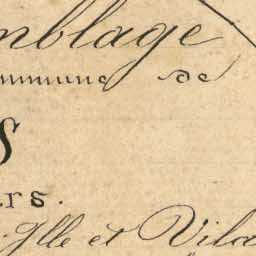 mblage
mmune de
S
rs.
Ille et Vila